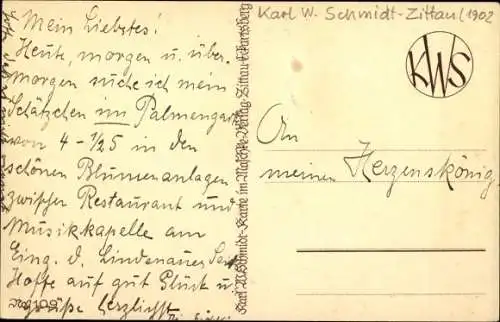 Karl W. Schmidt-Zittau (1902
KWS
Mein Liebstes!
Heute, morgen u. über-
morgen suche ich mein
Schätzchen im Palmengar
von 4 - 1/25 in den
schönen Blumenanlagen
zwischen Restaurant und
Musikkapelle am
Eing. d. Lindenauer
Hoffe auf gut Glück u.
grüße herzlichst
Karl W. Schmidt-Karte im Maschke-Verlag-Zittau-Eckartsberg
An
meinen Herzenskönig